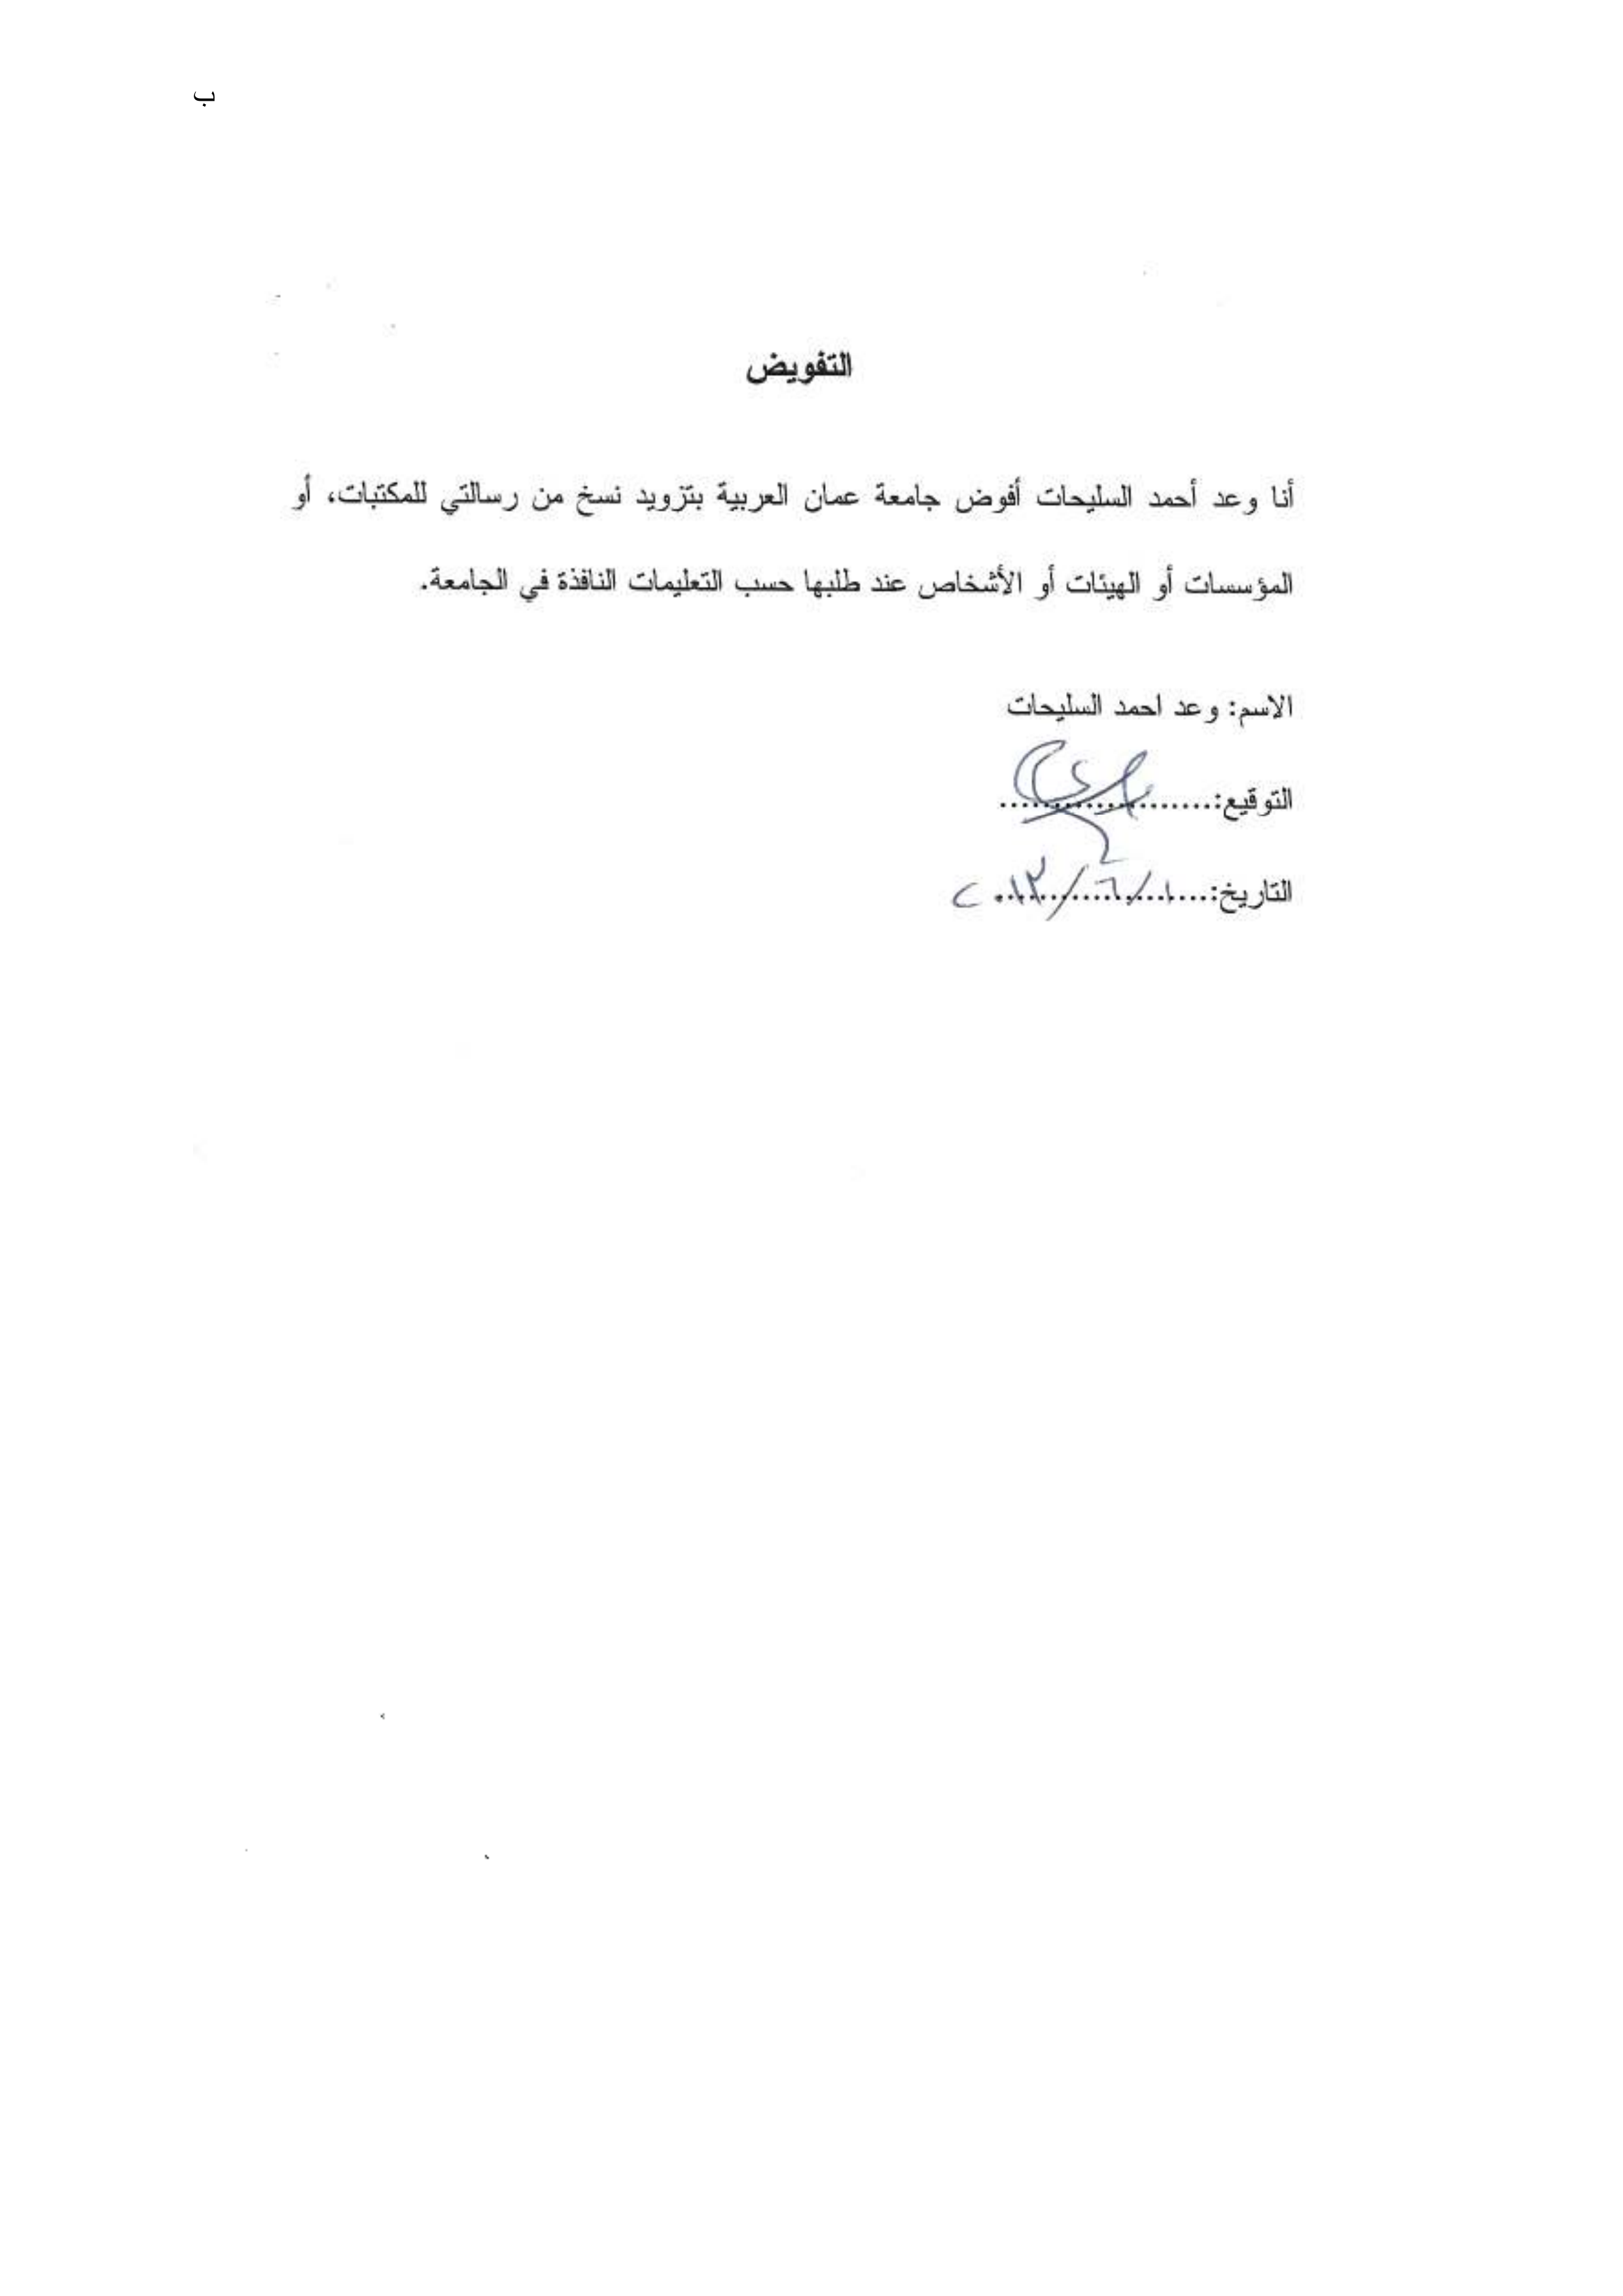 ب
التفويض
أنا وعد أحمد السليحات أفوض جامعة عمان العربية بتزويد نسخ من رسالتي للمكتبات، أو
المؤسسات أو الهيئات أو الأشخاص عند طلبها حسب التعليمات النافذة في الجامعة.
الاسم: وعد احمد السليحات
التوقيع:....................
التاريخ:....١/٦/٢٠١٣